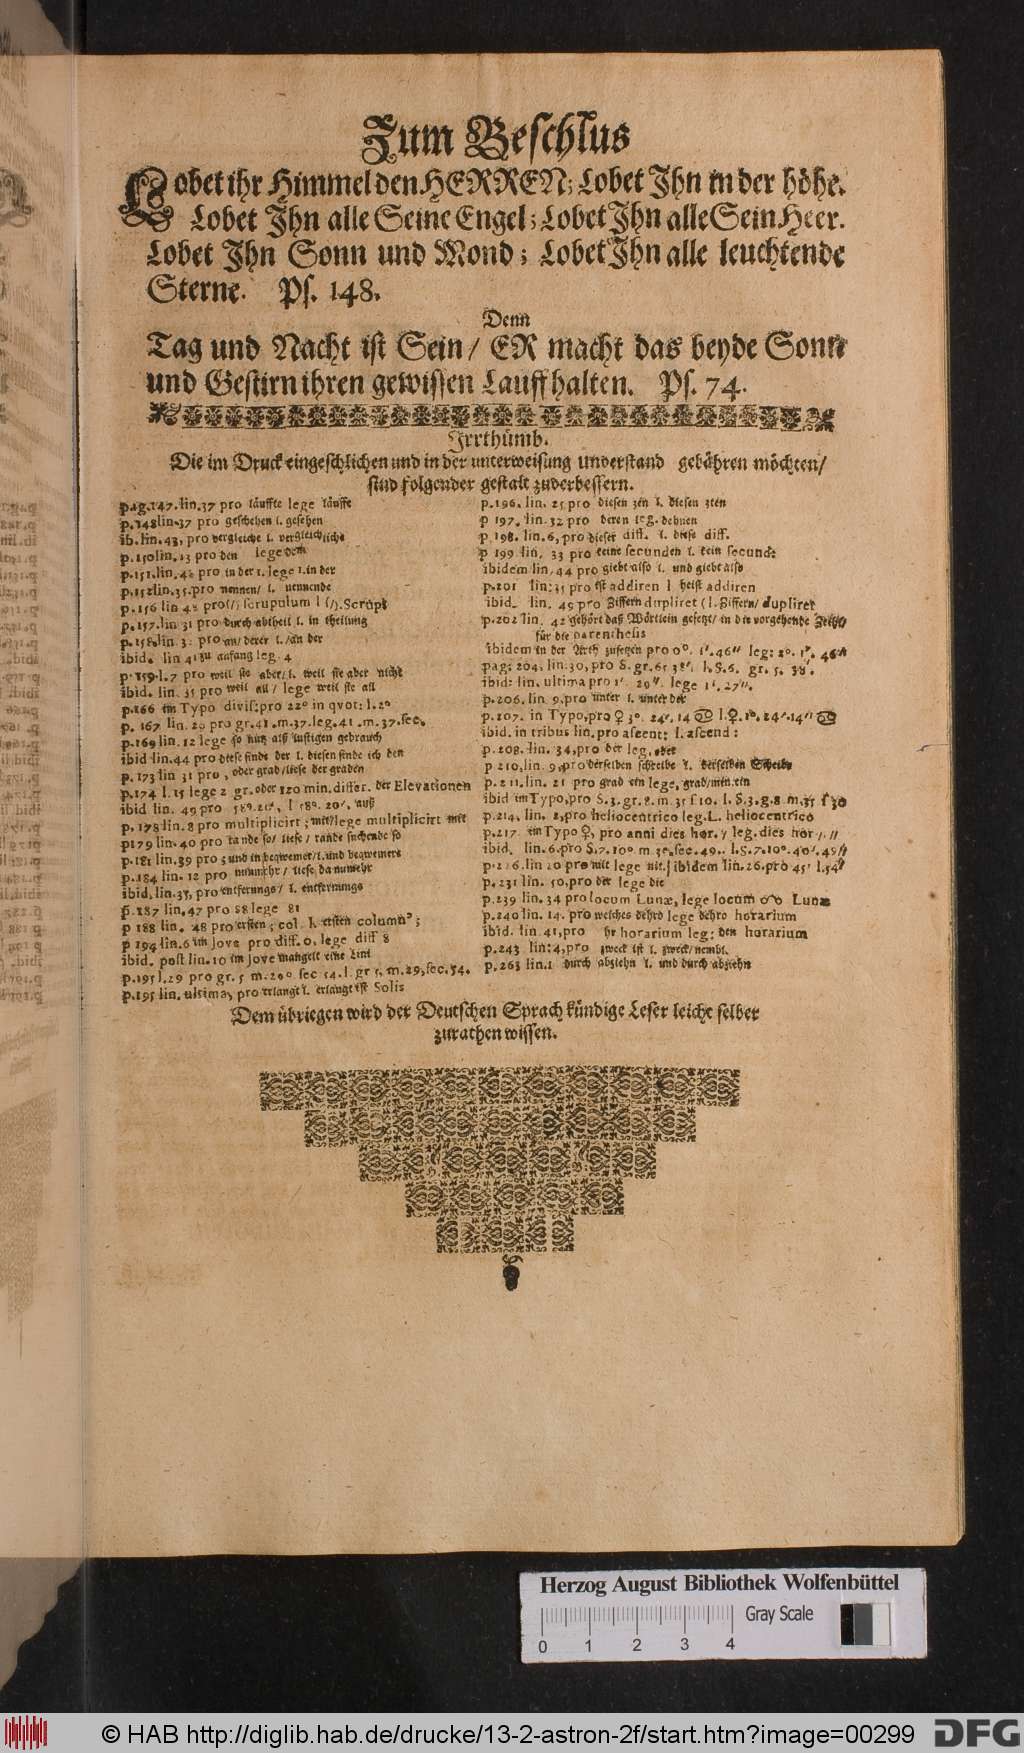 Zum Beschlus
Lobet ihr Himmel den HERREN; Lobet Ihn in der höhe.
Lobet Ihn alle Seine Engel; Lobet Ihn alle Sein Heer.
Lobet Ihn Sonn und Mond; Lobet Ihn alle leuchtende
Sterne. Ps. 148.
Denn
Tag und Nacht ist Sein/ ER macht das beyde Sonn
und Gestirn ihren gewissen Lauff halten. Ps. 74.
Irrthümb.
Die im Druck eingeschlichen und in der unterweisung understand gebähren möchten/
sind folgender gestalt zuverbessern.
pag. 147. lin. 37 pro läuffte lege läuffe
p. 148 lin. 37 pro geschehen l. gesehen
ib. lin. 43, pro vergleiche l. vergleichliche
p. 150 lin. 13 pro den lege dem
p. 151. lin. 42 pro in der 1. lege 1. in der
p. 152 lin. 35. pro nennen/ l. nennende
p. 156 lin 42 scrupulum
p. 157. lin 31 pro durch abtheil l. in theilung
p. 158. lin. pro an/ derer l. /an der
ibid. lin 41 zu anfang leg. 4
p. 159. l. 7 pro weil sie aber/ l. weil sie aber nicht
ibid. lin. 35 pro weil all/ lege weil sie all
p. 166 im Typo divis: pro 22° in qvot: l. 2°
p. 167 lin. 29 pro gr. 41. m. 37. leg. 41. m. 37. sec.
p. 169 lin. 12 lege so nutz alß lustigen gebrauch
ibid lin. 44 pro diese finde der l. diesen finde ich den
p. 173 lin 31 pro, oder grad/ liese der graden
p. 174 l. 15 lege 2 gr. oder 120 min. differ. der Elevationen
ibid lin. 49 pro 58°. 21', l 58°. 20', auß
p. 178 lin. 8 pro multiplicirt; mit/ lege multiplicirt mit
p 179 lin. 40 pro tande so/ liese/ tande suchende so
p. 181 lin. 39 pro; und in beqwemer/ l. und beqwemers
p. 184 lin. 12 pro nunmehr/ liese da nunmehr
ibid. lin. 35, pro entfernugs/ l. entfernungs
p. 187 lin. 47 pro 88 lege 81
p 188 lin. 48 pro ersten; col. l. ersten column;
p 194 lin. 6 im Jove pro diff. 0, lege diff 8
ibid. post lin. 10 im Jove mangelt eine Lini
p. 195 l. 29 pro gr. 5 m. 20° sec 54. l. gr 5, m. 29, sec. 54.
p. 195 lin. ultima, pro erlangt l. erlangt ist Solis
p. 196. lin. 25 pro diesen 3en l. diesen 3ten
p 197. lin. 32 pro deren leg. dehnen
p 198. lin. 6, pro dieser diff. l. diese diff.
p 199 lin. 33 pro keine secunden l. kein secund:
ibidem lin. 44 pro giebt also l. und giebt also
p. 201 lin: 35 pro ist addiren l heist addiren
ibid. lin. 49 pro Ziffern dupliret ( l. Ziffern/ dupliret
p. 202 lin. 42 gehört daß Wörtlein gesetzt/ in die vorgehende Zeile/
für die parenthesis
ibidem in der 4eth zusetzen pro 0°. 1'. 46'' leg: 2°. 1'. 46''
pag: 204, lin. 30, pro S. gr. 6. 38', l. S. 6. gr. 5. 38'.
ibid: lin. ultima pro 1'. 29''. lege 1'. 27''.
p. 206. lin. 9. pro unter l. unter der
p. 207. in Typo, pro ♀ 3°. 24', 14 ♋ l. ♀. 1°. 24'. 14'' ♋
ibid. in tribus lin. pro ascent: l. ascend:
p. 208. lin. 34, pro der leg. oder
p 210, lin. 9, pro derselben schreibe l. derselben Scheibe
p. 211. lin. 21 pro grad ein lege, grad/ min. ein
ibid im Typo, pro S. 3. gr. 8. m. 35 f 10. l. S. 3. g. 8 m. 35 f 30
p. 214, lin. 2, pro heliocentrico leg. L. heliocentrico
p. 217. im Typo ♀, pro anni dies hor. / leg. dies hor. / . //
ibid. lin. 6. pro S. 7. 10° m 3°, sec. 49.. l. S. 7. 10°. 40'. 49''
p. 226. lin 20 pro mit lege nit. ibidem lin. 26. pro 45' l. 54'
p. 231 lin. 50, pro der lege die
p. 239 lin. 34 pro locum Lunæ, lege locum ☍ Lunæ
p. 240 lin. 14. pro welches dehro lege dehro horarium
ibid. lin. 41, pro ihr horarium leg: den horarium
p. 243 lin: 4, pro zweck ist l. zweck/ nembl.
p. 263 lin. 1 durch abziehn l. und durch abziehn
Dem übriegen wird der Deutschen Sprach kündige Leser leicht selber
zurathen wissen.
Herzog August Bibliothek Wolfenbüttel
Gray Scale
0 1 2 3 4
© HAB http://diglib.hab.de/drucke/13-2-astron-2f/start.htm?image=00299
DFG